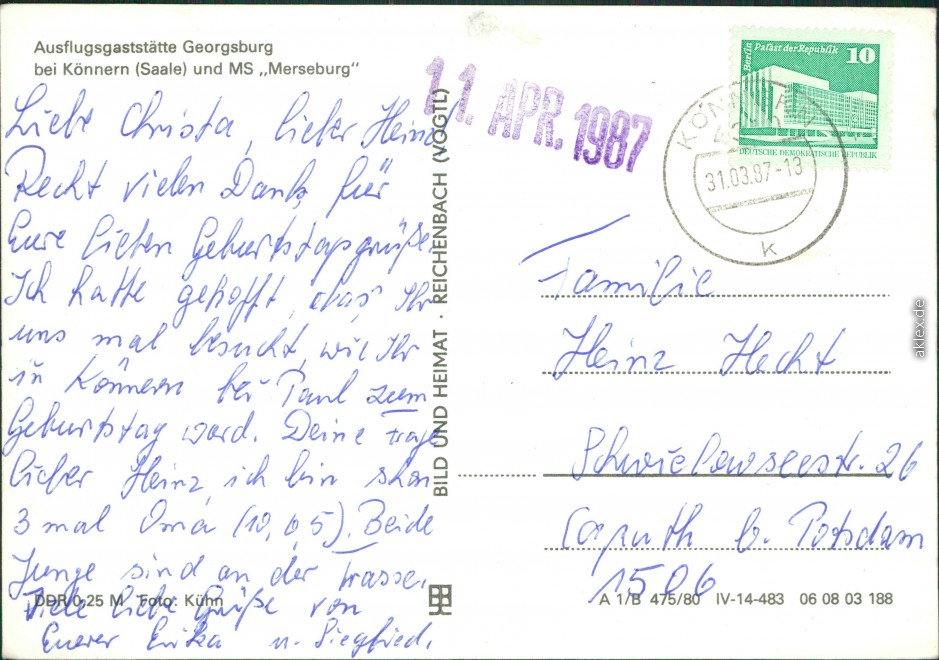 Ausflugsgaststätte Georgsburg
bei Könnern (Saale) und MS „Merseburg"
Liebe Christa, lieber Heinz
Recht vielen Dank für
Eure lieben Geburtstagsgrüße
Ich hatte gehofft, das Ihr
uns mal besucht, wie Ihr
in Könnern bei Paul zum
Geburtstag ward. Deine Frage
lieber Heinz, ich bin schon
3 mal Oma (10, 6, 5). Beide
Junge sind an der Trasse.
Viele liebe Grüße von
Eurer Erika u. Siegfried.
DDR 0,25 M Foto: Kühn
BILD UND HEIMAT · REICHENBACH (VOGTL)
11. APR. 1987
Berlin Palast der Republik 10
DEUTSCHE DEMOKRATISCHE REPUBLIK
31.03.87-13
k
Familie
Heinz Hecht
Schwielowseestr. 26
Caputh b. Potsdam
1506
A 1/B 475/80 IV-14-483 06 08 03 188
aklex.de